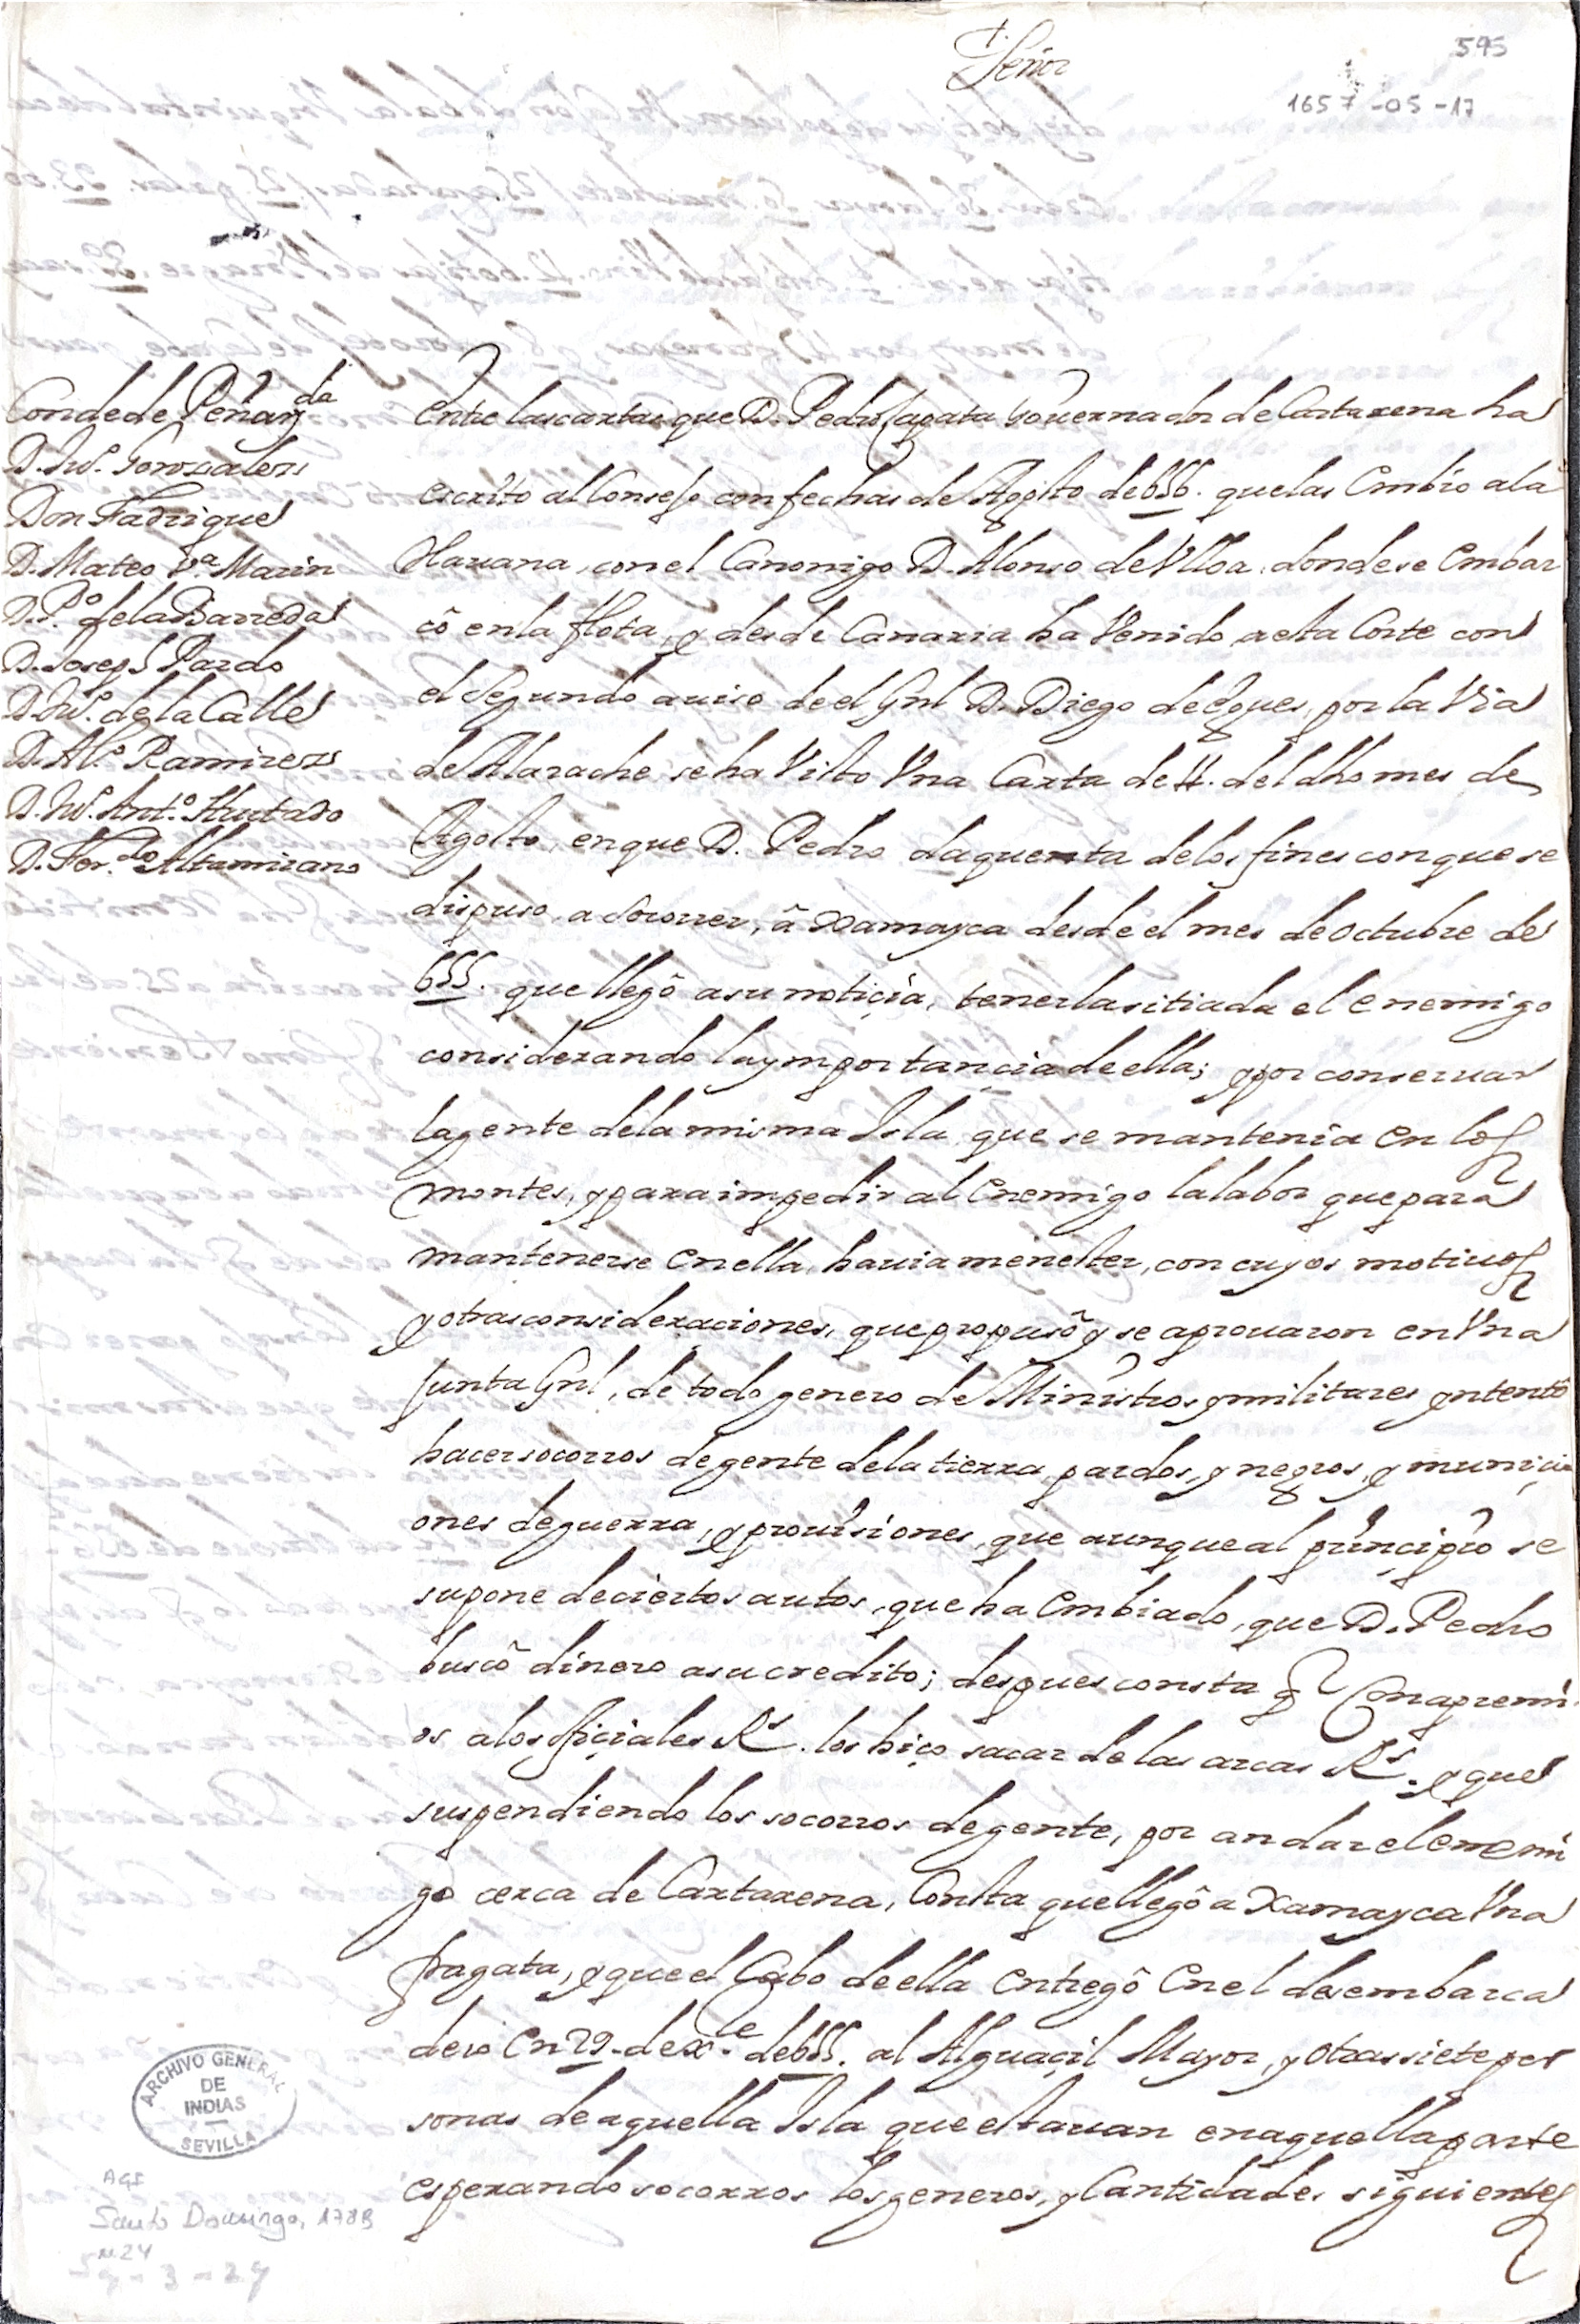 †
Señor
595
1657-05-17
Conde de Peñarda
D. Juº. Gonzalez
Don Fadrique
D. Mateo Va. Marin
D. Pº de la Barreda
D. Joseph Pardo
D. Juº. de la Calle
D. Alº. Ramirez
D. Juº. Antº. Hurtado
D. Ferdo. Altamirano
Entre las cartas que D. Pedro Çapata Gouernador de Cartaxena ha
escrito al Consejo con fechas de Agosto de 656. que las Embio a la
Hauana, con el Canonigo D. Alonso de Vlloa, donde se Embar
cô en la flota, y desde Canaria ha Venido a esta Corte con
el Segundo auiso de el Gnl D. Diego de Egues, por la Via
de Alarache se ha Visto Vna Carta de 11. del dho mes de
Agosto, en que D. Pedro da quenta de los fines con que se
dispuso, a Socorrer, â Xamayca desde el mes de Octubre de
655. que llegô a su notiçia, tenerla sitiada el enemigo
considerando la ymportançia de ella; y por conseruar
la gente de la misma Isla que se mantenia en los
montes, y para impedir al Enemigo la labor que para
mantenerse en ella, hauia menester, con cuyos motiuos
y otras consideraciones, que propusô y se aprouaron en Vna
Junta Gnl, de todo genero de Ministros y militares yntentô
hacer socorros de gente de la tierra, pardos, y negros, y muniçi
ones de guerra, y prouisiones, que aunque al prinçipio se
supone de ciertos autos, que ha Embiado, que D. Pedro
buscô dinero a su credito; despues consta q Con apremi
os a los ofiçiales Rs. los hiço sacar de las arcas Rs. y que
suspendiendo los socorros de gente, por andar el enemi
go cerca de Cartaxena, Consta que llegô a Xamayca Vna
fragata, y que el Cabo de ella Entregô En el desembarca
dero En 29 de Xe. de 655. al Alguaçil Mayor, y otras siete per
sonas de aquella Isla que estauan en aquella parte
esperando socorros los generos, y Cantidades siguientes
ARCHIVO GENERAL
DE
INDIAS
SEVILLA
AGI
Santo Domingo, 178B
N. 24